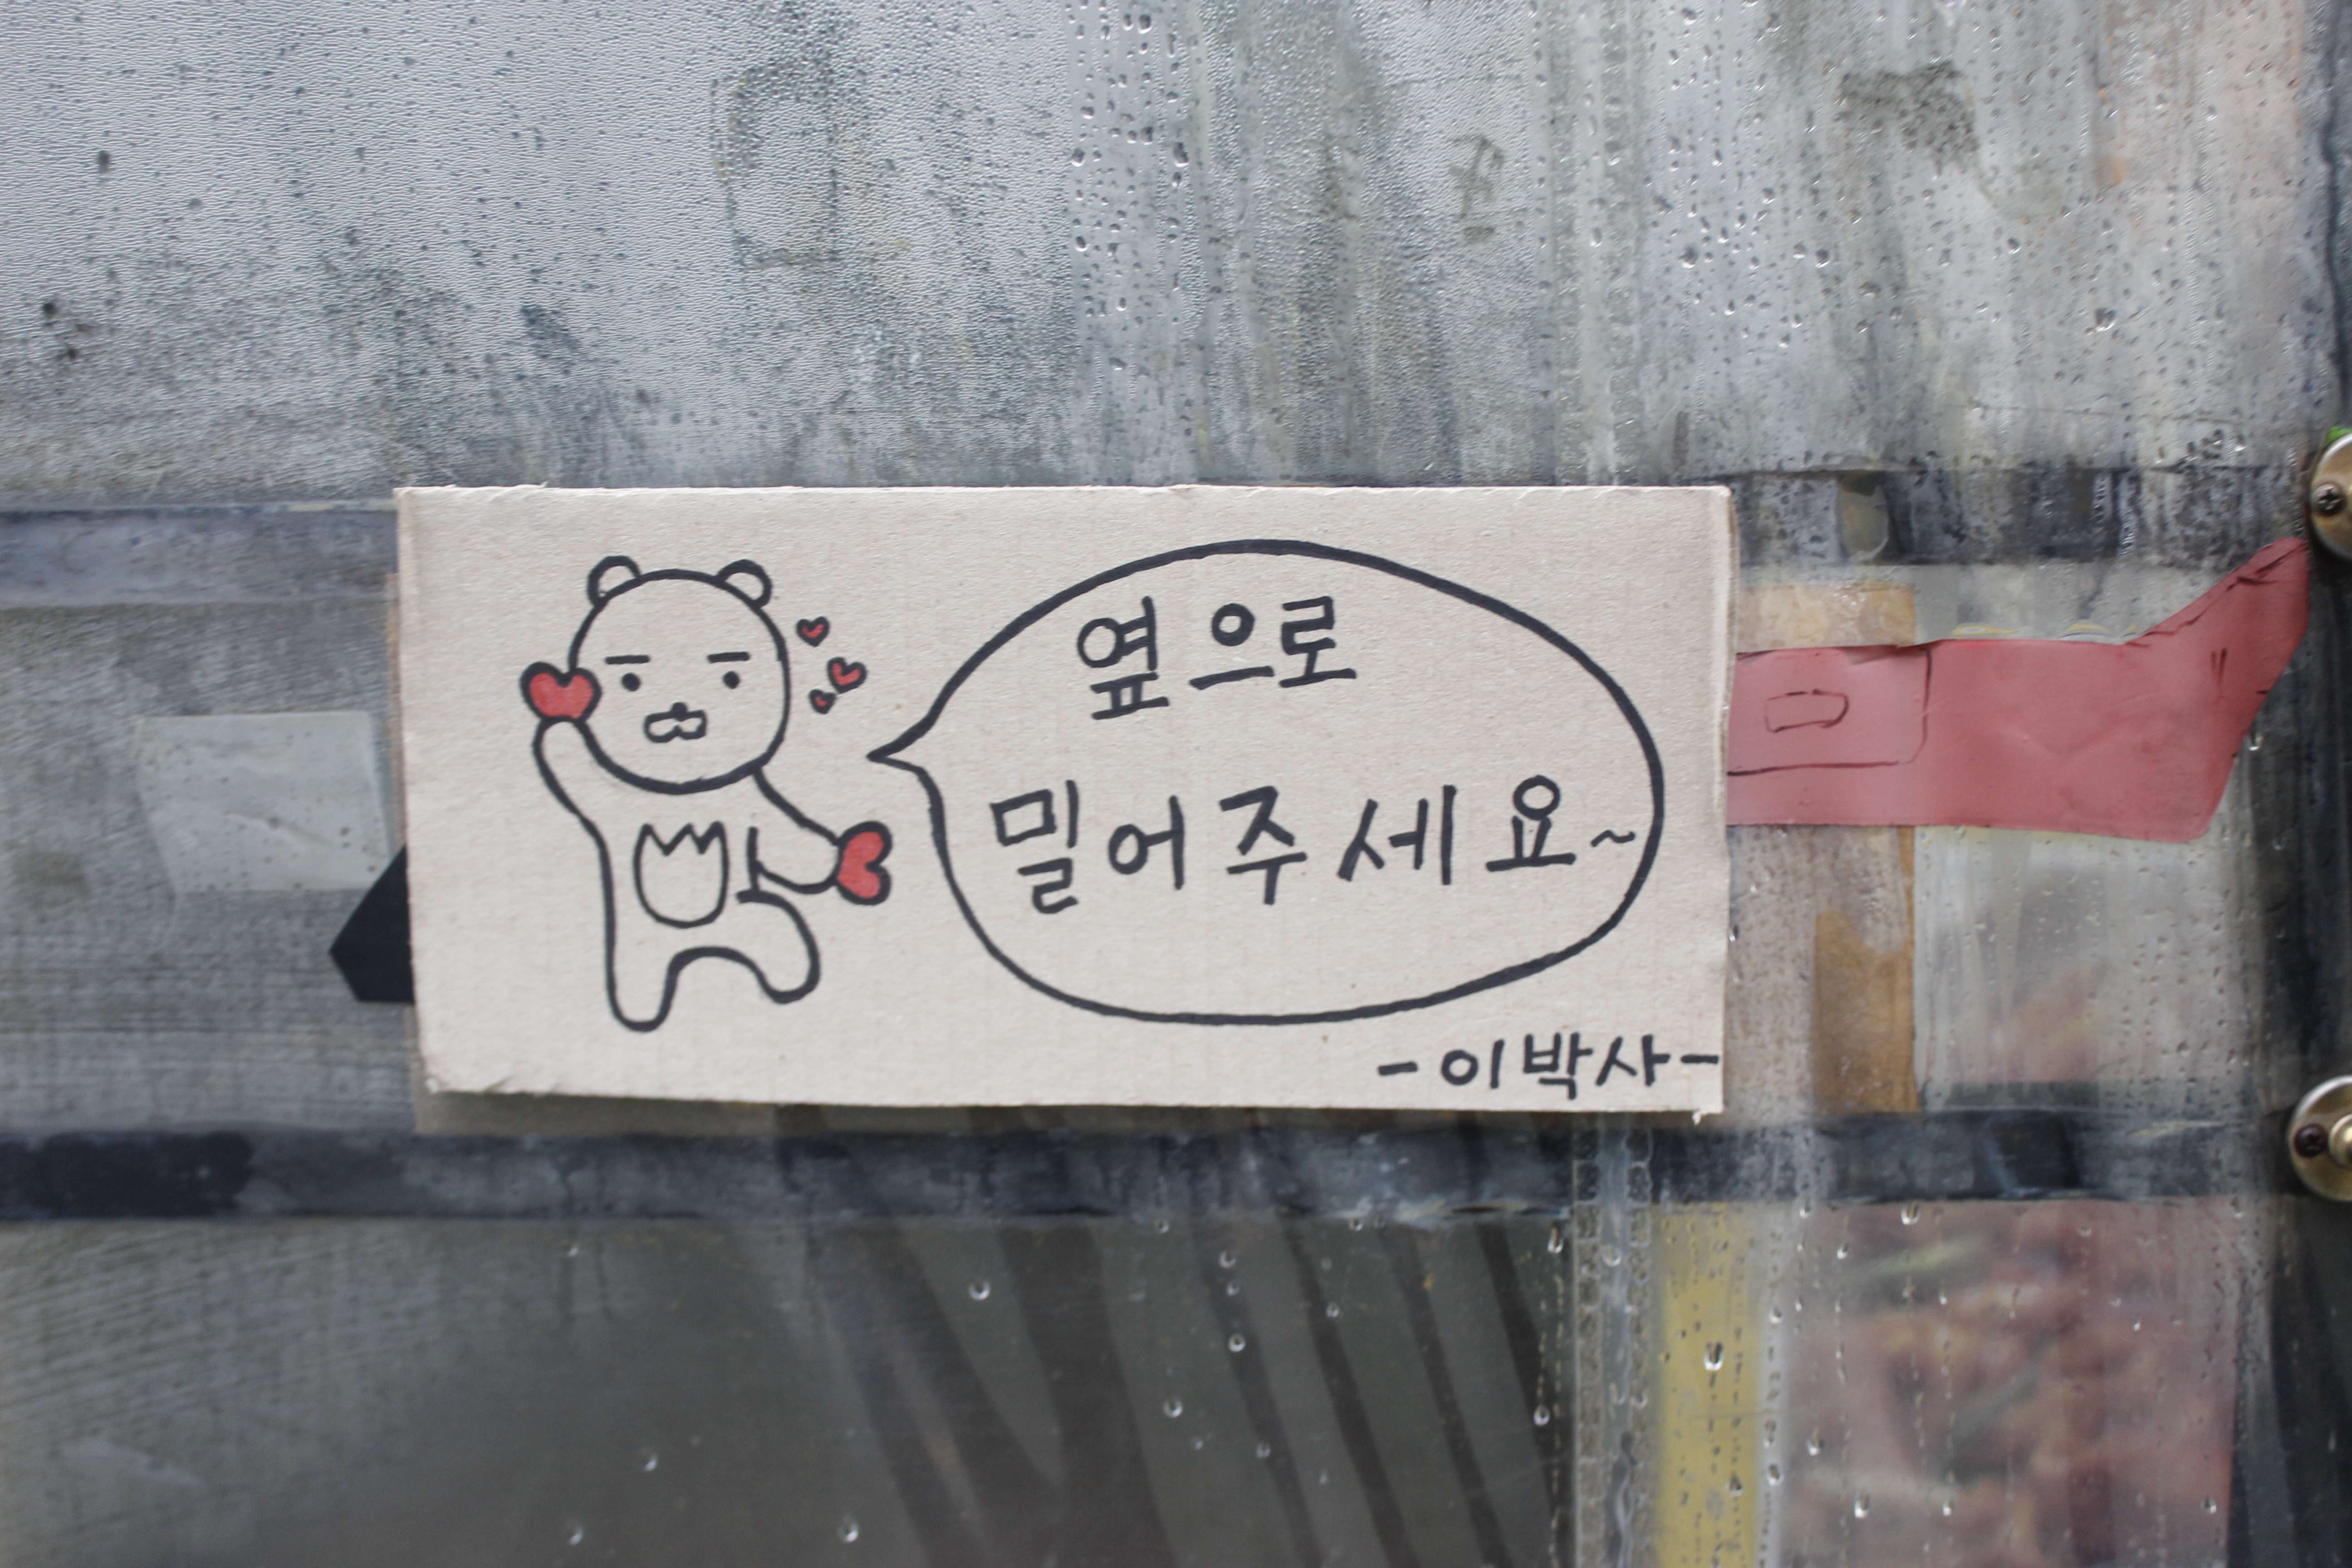 옆으로
밀어주세요~
-이박사-